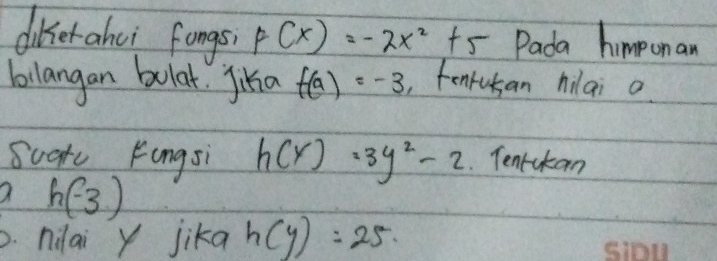 diketahui fungsi f(x) = -2x² +5 Pada himpunan
bilangan bulat. Jika f(a) = -3, tentukan nilai a.
Suatu Fungsi h(Y) = 3y² - 2. Tentukan
a h(-3)
b. nilai y jika h(y) = 25.
SiDU